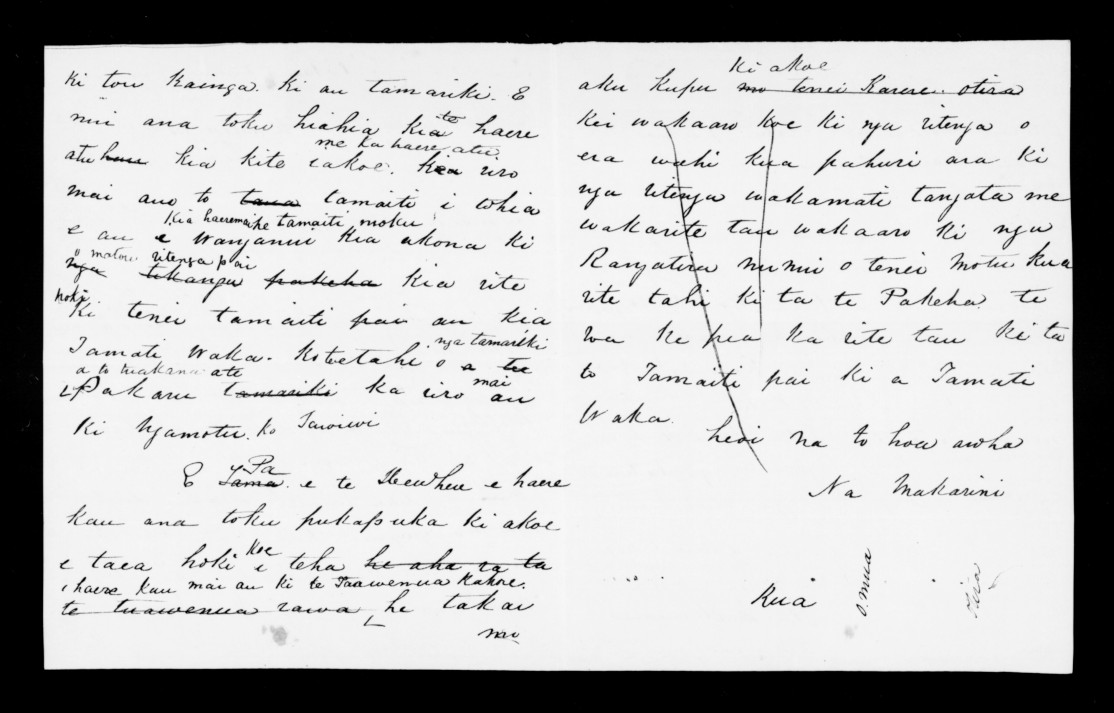 Ki tou Kainga. Ki au tamariki. E
nui ana toku hiahia Kia te haere
me ka haere atu
atu hau kia kite i akoe. Kia riro
mai ano to taua tamaiti i tohia
Kia haere mai he tamaiti moku
e au e Wanganui Kia akona Ki
o matou ritenga pai
nga tikanga pakeha Kia rite
hoki
Ki tenei tamaiti pai au Kia
Tamati Waka. Kotetahi o nga tamariki a te
a to makana ate
Pakaru tamariki ka riro mai au
Ki Ngamotu. Ko Tawiwi
E Pa Tama. e te Wewheu e haere
kau ana toku pukapuka ki akoe
e taea hoki koe e teha he aha ra ta
e haere kau mai au ki te Taawenua Kahore.
te tuawenua rawa he takau
nau
Ki akoe
aku kupu mo tenei Karere. otira
Kei wakaaro koe Ki nga ritenga o
era wahi kua pahuri ara Ki
nga ritenga wakamati tangata me
wakarite tau wakaaro ki nga
Rangatira nunui o tenei motu kua
rite tahi Ki ta te Pakeha te
wa ke pea ka rite tau Ki ta
to Tamaiti pai Ki a Tamati
Waka.
heoi na to hoa aroha
Na Makarini
Kua
O. mua